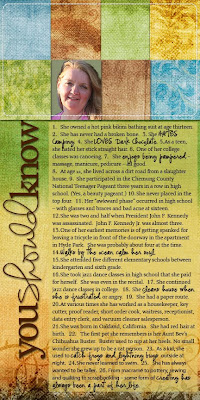 you should know
1. She owned a hot pink bikini bathing suit at age thirteen.
2. She has never had a broken bone. 3. She HATES
Camping. 4. She LOVES Dark Chocolate. 5. As a teen,
she hated her stick straight hair. 6. One of her college
classes was canoeing. 7. She enjoys being pampered -
massage, manicure, pedicure - all good
8. At age 11, she lived across a dirt road from a slaughter
house. 9. She participated in the Chemung County
National Teenager Pageant three years in a row in high
school. (Yes, a beauty pageant.) 10. She never placed in the
top four. 11. Her "awkward phase" occurred in high school
- with glasses and braces and bad acne at sixteen.
12. She was two and half when President John F. Kennedy
was assassinated. John F. Kennedy Jr. was almost three.
13. One of her earliest memories is of getting spanked for
leaving a tricycle in front of the doorway in the apartment
in Hyde Park. She was probably about four at the time.
14. Walks by the ocean calm her soul.
15. She attended five different elementary schools between
kindergarten and sixth grade.
16. She took jazz dance classes in high school that she paid
for herself. She was even in the recital. 17. She continued
jazz dance classes in college. 18. She cleans house when
she is frustrated or angry. 19. She had a paper route.
20. At various times she has worked as a housekeeper, key
cutter, proof reader, short order cook, waitress, receptionist,
data entry clerk, and vacuum cleaner salesperson.
21. She was born in Oakland, California. She had red hair at
birth. 22. The first pet she remembers is her Aunt Bev's
Chihuahua Buster. Buster used to nip at her heels. No small
wonder she grew up to be a cat person. 23. As a kid, she
used to catch frogs and lightning bugs outside at
night. 24. She never learned to swim. 25. She has always
wanted to be taller. 26. From macramé to pottery, sewing
and quilting to scrapbooking - some form of creating has
always been a part of her life.